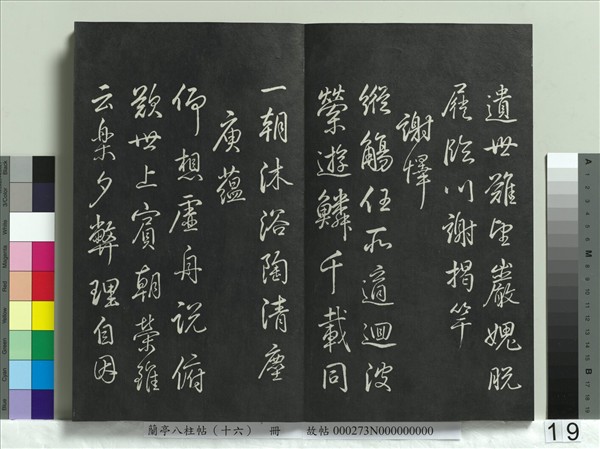 遺世難望巖愧脫
屣臨川謝揭竿
謝繹
縱觴任所適迴波
縈遊鱗千載同
一朝沐浴陶清塵
庾蘊
仰想虛舟說俯
歎世上賓朝榮雖
云樂夕弊理自因
蘭亭八柱帖(十六) 冊 故帖 000273N000000000
19
Black
3/Color
White
Magenta
Red
Yellow
Green
Cyan
Blue
A
M
B